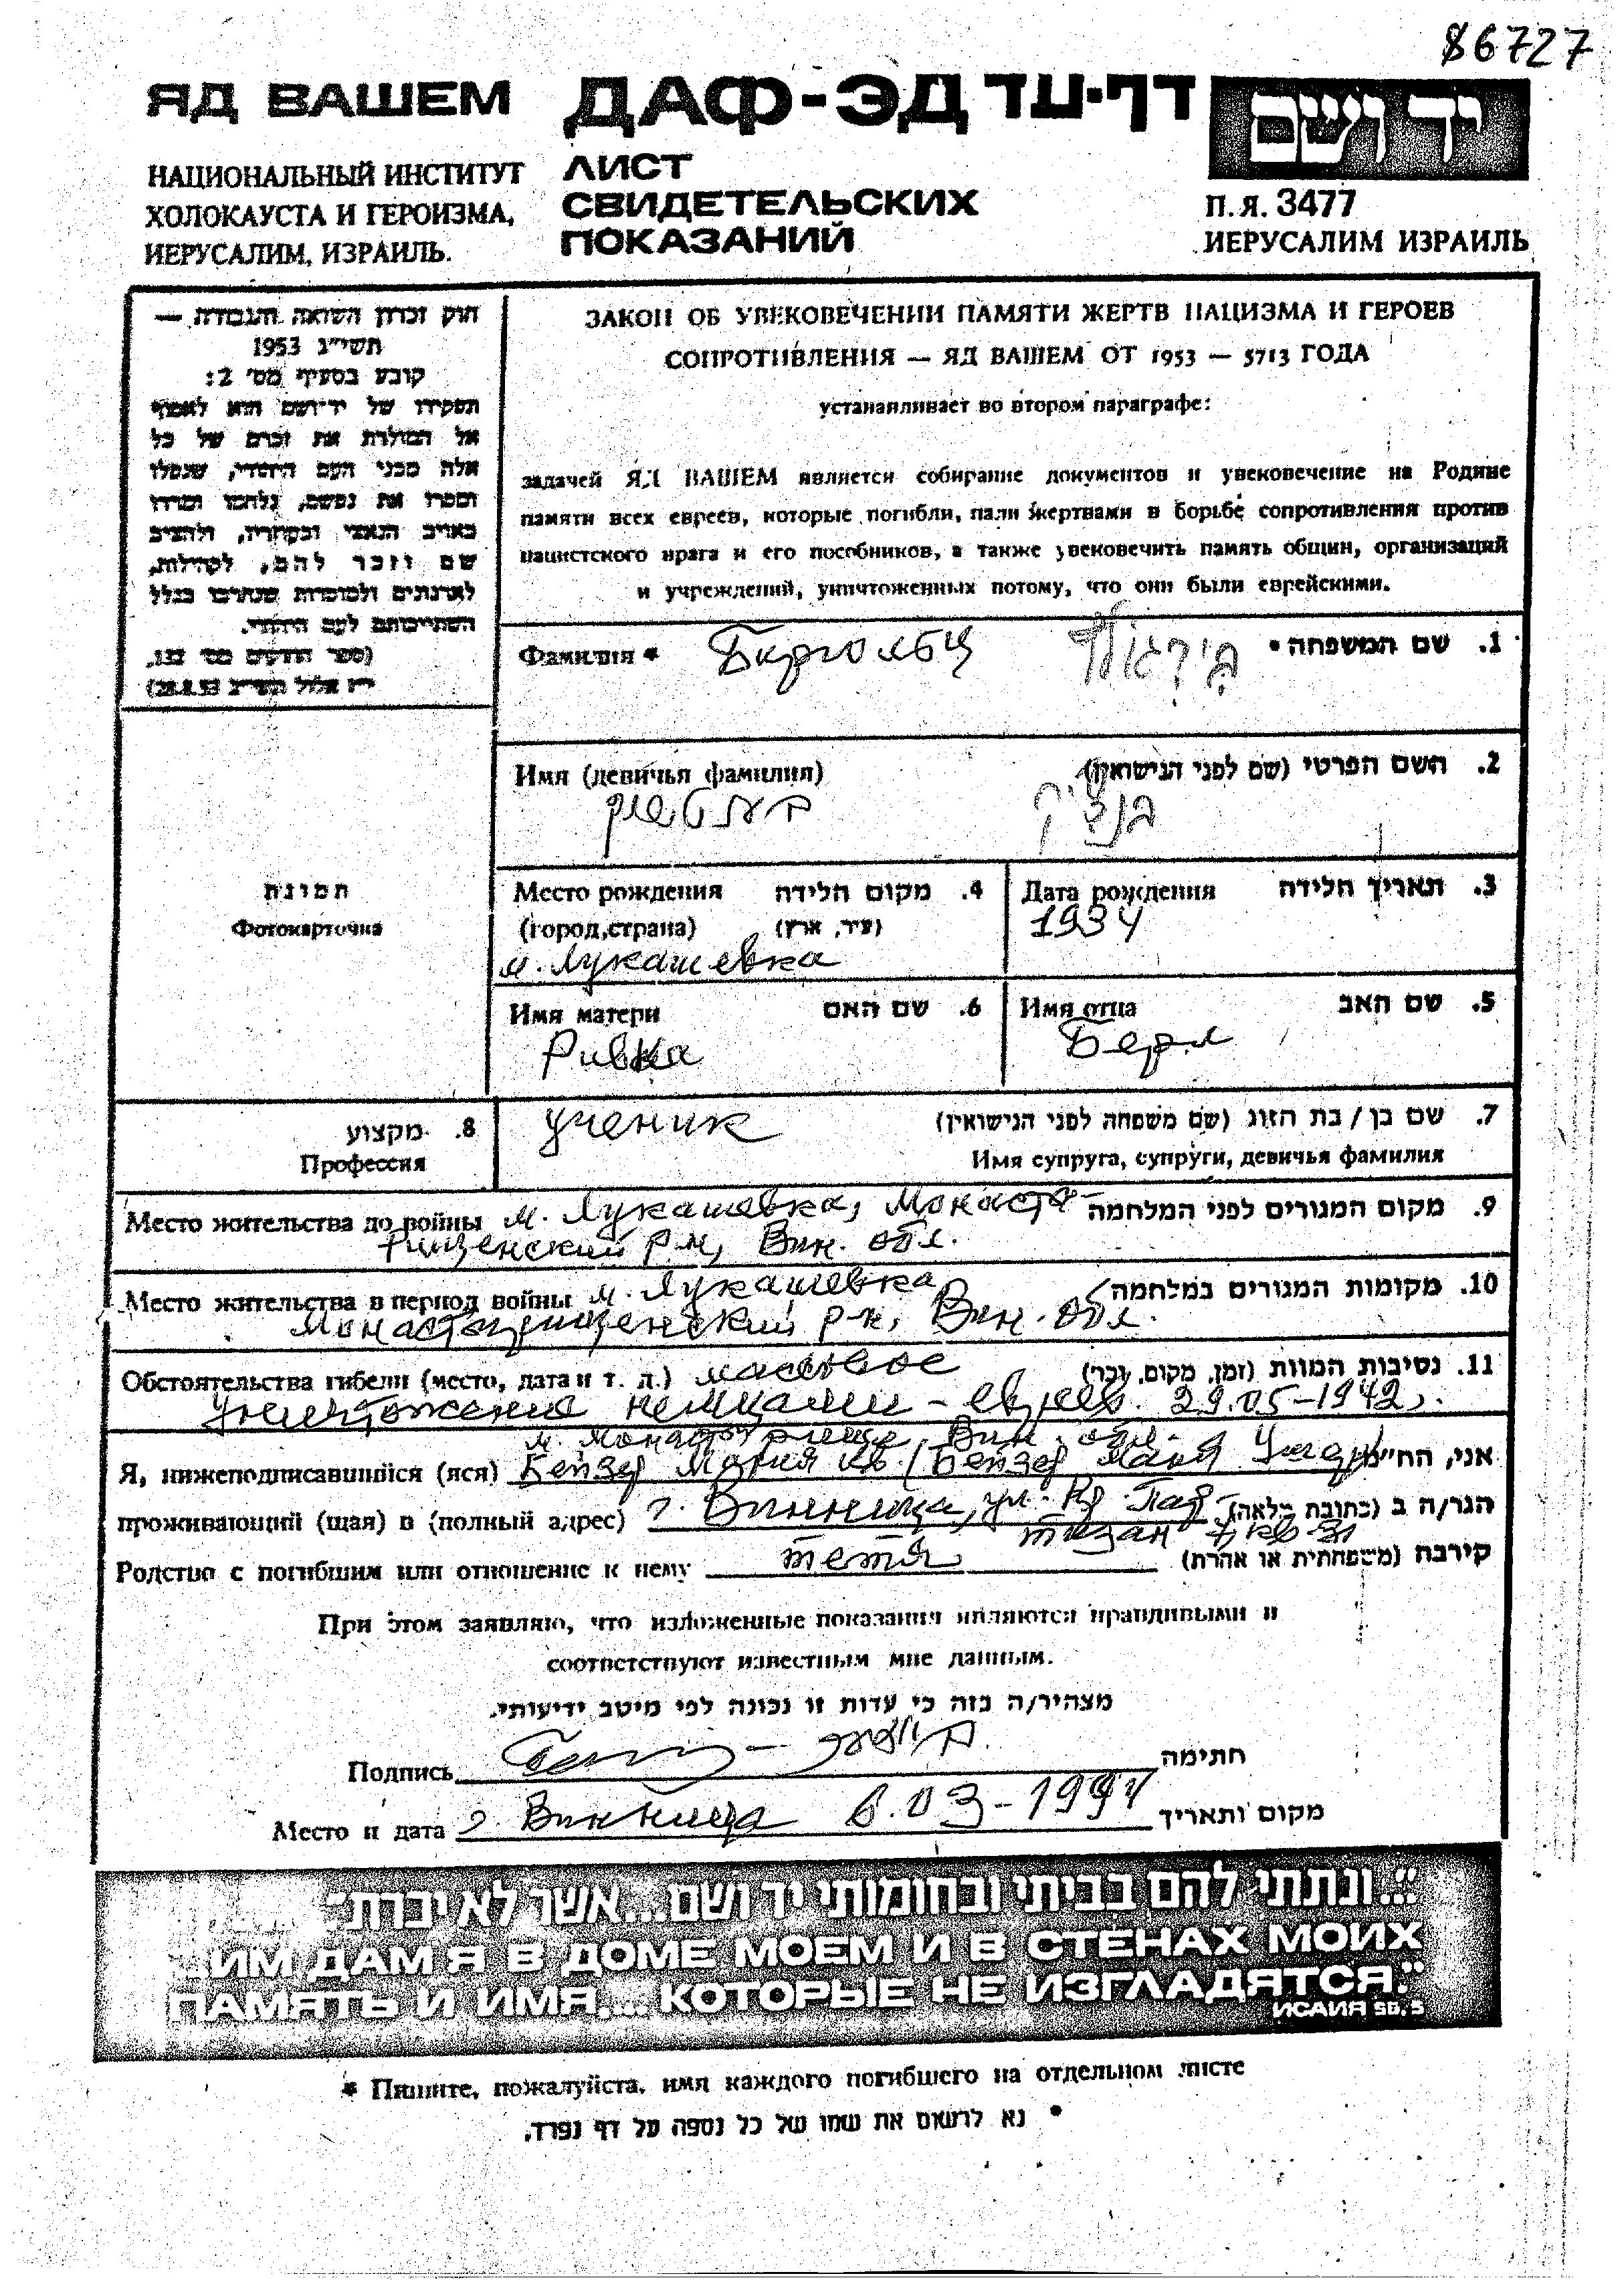 86727
ЯД ВАШЕМ ДАФ-ЭД דף-עד יד ושם
НАЦИОНАЛЬНЫЙ ИНСТИТУТ
ХОЛОКАУСТА И ГЕРОИЗМА,
ИЕРУСАЛИМ, ИЗРАИЛЬ.
ЛИСТ
СВИДЕТЕЛЬСКИХ
ПОКАЗАНИЙ
П.Я. 3477
ИЕРУСАЛИМ ИЗРАИЛЬ
חוק זכרון השואה והגבורה —
תשי״ג 1953
קובע בסעיף מס׳ 2:
תפקידו של יד־ושם הוא לאסוף
אל המולדת את זכרם של כל
אלה מבני העם היהודי, שנפלו
ומסרו את נפשם, נלחמו ומרדו
באויב הנאצי ובעוזריו, ולהציב
שם וזכר להם, לקהילות,
לארגונים ולמוסדות שנחרבו בגלל
השתייכותם לעם היהודי.
(ספר החוקים מס׳ 132,
י״ז אלול תשי״ג 28.8.53)
ЗАКОН ОБ УВЕКОВЕЧЕНИИ ПАМЯТИ ЖЕРТВ НАЦИЗМА И ГЕРОЕВ
СОПРОТИВЛЕНИЯ — ЯД ВАШЕМ ОТ 1953 — 5713 ГОДА
устанавливает во втором параграфе:
задачей ЯД ВАШЕМ является собирание документов и увековечение на Родине
памяти всех евреев, которые погибли, пали жертвами в борьбе сопротивления против
нацистского врага и его пособников, а также увековечить память общин, организаций
и учреждений, уничтоженных потому, что они были еврейскими.
Фамилия * Биргольц 1. שם המשפחה •
Имя (девичья фамилия) 2. השם הפרטי (שם לפני הנישואין)
תמונה
Фотокарточка
Место рождения 4. מקום הלידה
(город, страна) (עיר, ארץ)
м. Лукашевка
Дата рождения 3. תאריך הלידה
1934
Имя матери 6. שם האם
Ривка
Имя отца 5. שם האב
Берл
8. מקצוע
Профессия
ученик
7. שם בן / בת הזוג (שם משפחה לפני הנישואין)
Имя супруга, супруги, девичья фамилия
Место жительства до войны м. Лукашевка, Монасты- 9. מקום המגורים לפני המלחמה
рищенский р-н, Вин. обл.
Место жительства в период войны м. Лукашевка 10. מקומות המגורים במלחמה
Монастырищенский р-н, Вин. обл.
Обстоятельства гибели (место, дата и т. д.) массовое 11. נסיבות המוות (זמן, מקום, וכר׳)
Уничтожение немцами - евреев. 29.05-1942г.
м. Монастырище, Вин. обл.
Я, нижеподписавшийся (яся) Бейзер Мария (Бейзер Маня אני, החיימ
проживающий (щая) в (полный адрес) г. Винница, ул. Кр. Пар- הגר/ה ב (כתובת מלאה)
тизан
Родство с погибшим или отношение к нему тетя קירבה (משפחתית או אחרת)
При этом заявляю, что изложенные показания являются правдивыми и
соответствуют известным мне данным.
מצהיר/ה בזה כי עדות זו נכונה לפי מיטב ידיעותי.
Подпись חתימה
Место и дата г. Винница 6.03-1994 מקום ותאריך
״...ונתתי להם בביתי ובחומותי יד ושם...אשר לא יכרת״
...ИМ ДАМ Я В ДОМЕ МОЕМ И В СТЕНАХ МОИХ
ПАМЯТЬ И ИМЯ.... КОТОРЫЕ НЕ ИЗГЛАДЯТСЯ."
ИСАИЯ 56. 5
* Пишите, пожалуйста, имя каждого погибшего на отдельном листе
• נא לרשום את שמו של כל נספה על דף נפרד.